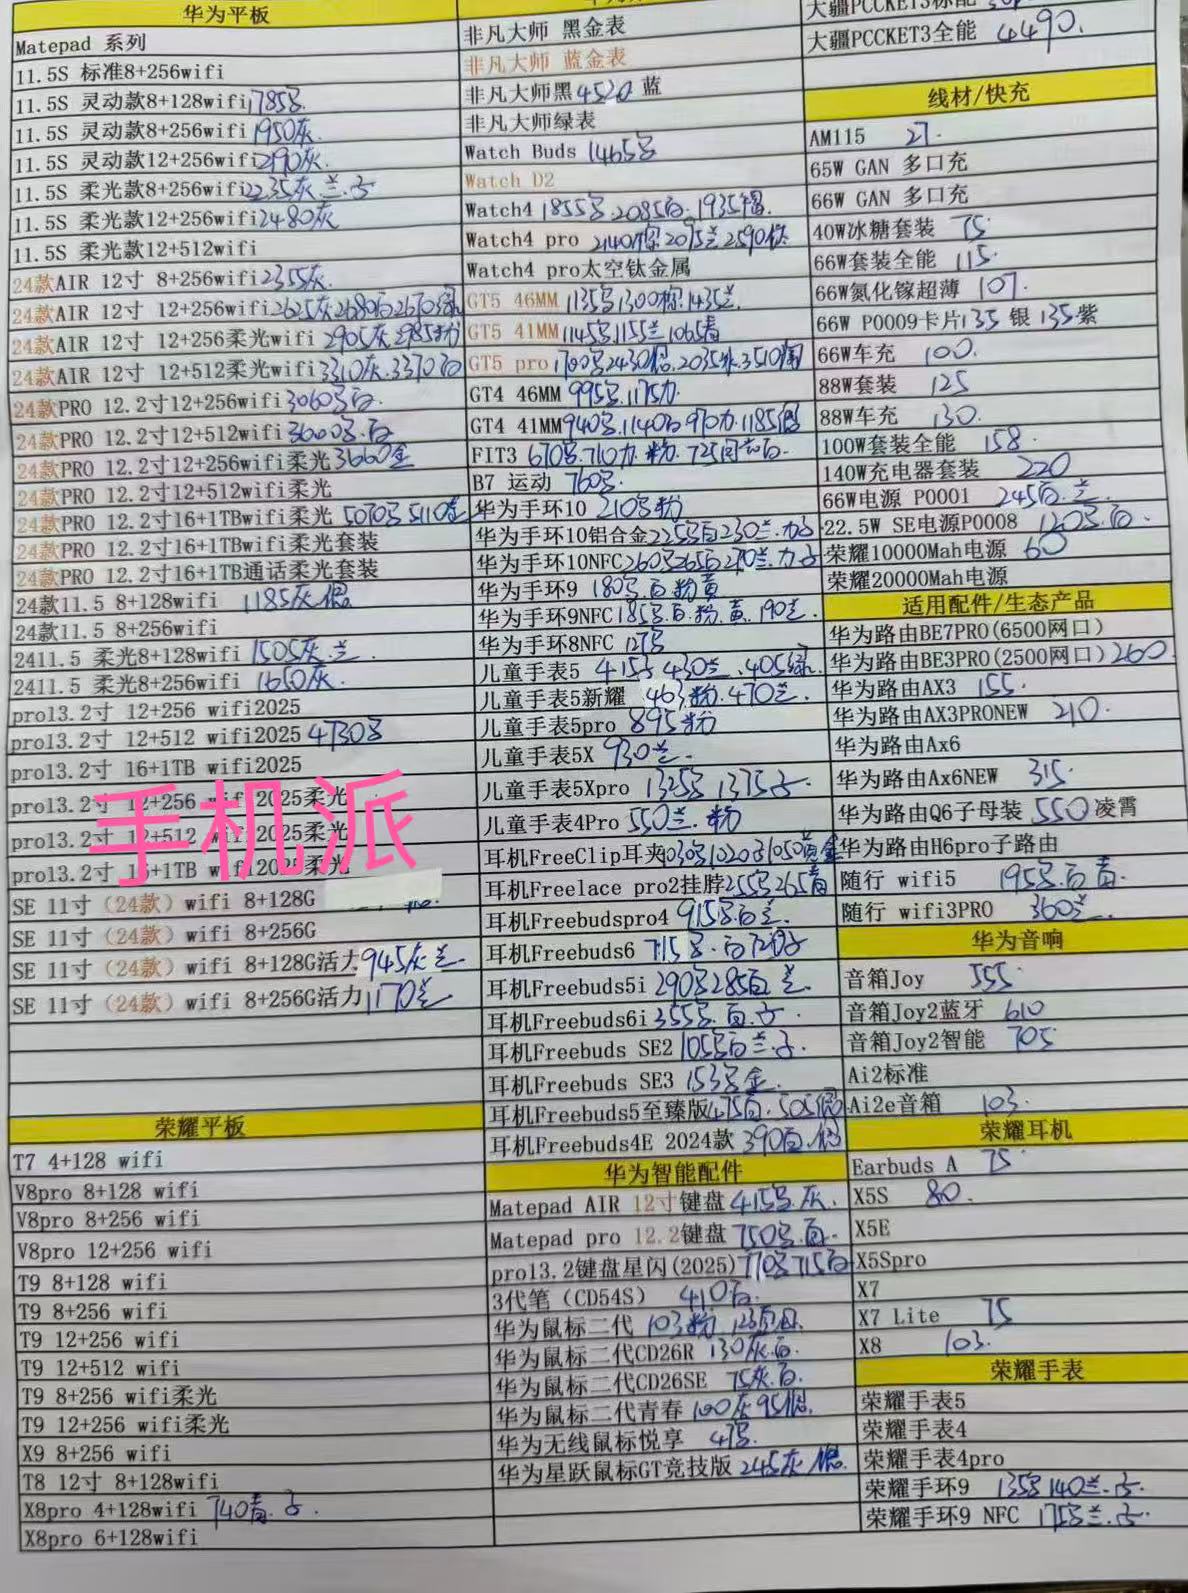 华为平板
Matepad 系列
11.5S 标准8+256wifi
11.5S 灵动款8+128wifi 1785
11.5S 灵动款8+256wifi 1950灰
11.5S 灵动款12+256wifi 2190灰.
11.5S 柔光款8+256wifi 2235灰.兰.
11.5S 柔光款12+256wifi 2480灰
11.5S 柔光款12+512wifi
24款AIR 12寸 8+256wifi 2355灰.
24款AIR 12寸 12+256wifi 2625灰2680白2670绿
24款AIR 12寸 12+256柔光wifi 2905灰 2985粉
24款AIR 12寸 12+512柔光wifi 3310灰.3370白
24款PRO 12.2寸12+256wifi 3060 白.
24款PRO 12.2寸12+512wifi 3600 .白
24款PRO 12.2寸12+256wifi柔光 3660金
24款PRO 12.2寸12+512wifi柔光
24款PRO 12.2寸16+1TBwifi柔光 5070 5110金
24款PRO 12.2寸16+1TBwifi柔光套装
24款PRO 12.2寸16+1TB通话柔光套装
24款11.5 8+128wifi 1185灰
24款11.5 8+256wifi
2411.5 柔光8+128wifi 1505灰.兰.
2411.5 柔光8+256wifi 1650灰.
pro13.2寸 12+256 wifi2025
pro13.2寸 12+512 wifi2025 4730
pro13.2寸 16+1TB wifi2025
pro13.2寸 12+256 wifi2025柔光
pro13.2寸 12+512 wifi2025柔光
pro13.2寸 16+1TB wifi2025柔光
手机派
SE 11寸（24款）wifi 8+128G
SE 11寸（24款）wifi 8+256G
SE 11寸（24款）wifi 8+128G活力 945灰兰.
SE 11寸（24款）wifi 8+256G活力 1170兰
荣耀平板
T7 4+128 wifi
V8pro 8+128 wifi
V8pro 8+256 wifi
V8pro 12+256 wifi
T9 8+128 wifi
T9 8+256 wifi
T9 12+256 wifi
T9 12+512 wifi
T9 8+256 wifi柔光
T9 12+256 wifi柔光
X9 8+256 wifi
T8 12寸 8+128wifi
X8pro 4+128wifi 740青.
X8pro 6+128wifi
非凡大师 黑金表
非凡大师 蓝金表
非凡大师黑 4520 蓝
非凡大师绿表
Watch Buds 1465
Watch D2
Watch4 1855 .2085白.1935
Watch4 pro 2140 2075兰2590
Watch4 pro太空钛金属
GT5 46MM 1135 1300棕.1435兰.
GT5 41MM 1145 1155兰1065青
GT5 pro 1700 2430 .2035 .3510
GT4 46MM 995 .1175
GT4 41MM 940 .1140白970 .1185
FIT3 670 .710 .粉.725 白.
B7 运动 760
华为手环10 210 粉
华为手环10铝合金 225 白230兰.
华为手环10NFC 260 265白270兰.
华为手环9 180 白粉黄
华为手环9NFC 185 .白.粉.黄.190兰.
华为手环8NFC 127
儿童手表5 415 430兰.405绿.
儿童手表5新耀 463.粉.470兰.
儿童手表5pro 895粉
儿童手表5X 930兰.
儿童手表5Xpro 1325 1375
儿童手表4Pro 550兰.粉
耳机FreeClip耳夹 1030 1020 1050 金
耳机Freelace pro2挂脖 255 265青
耳机Freebudspro4 915 白兰.
耳机Freebuds6 715 .白720
耳机Freebuds5i 290 285白兰.
耳机Freebuds6i 355 .白.
耳机Freebuds SE2 105 白兰.
耳机Freebuds SE3 153 金.
耳机Freebuds5至臻版 475白.505
耳机Freebuds4E 2024款 390白.
华为智能配件
Matepad AIR 12寸键盘 415 .灰.
Matepad pro 12.2键盘 750 .白.
pro13.2键盘星闪(2025) 770 715白
3代笔（CD54S） 410白.
华为鼠标二代 103粉.123
华为鼠标二代CD26R 130灰.白.
华为鼠标二代CD26SE 75灰.白.
华为鼠标二代青春 100灰95
华为无线鼠标悦享 47
华为星跃鼠标GT竞技版 245灰
大疆PCCKET3标配
大疆PCCKET3全能 4490.
线材/快充
AM115 27.
65W GAN 多口充
66W GAN 多口充
40W冰糖套装 75
66W套装全能 115.
66W氮化镓超薄 107.
66W P0009卡片 135 银 135.紫
66W车充 100.
88W套装 125
88W车充 130.
100W套装全能 158.
140W充电器套装 220
66W电源 P0001 245白.兰.
22.5W SE电源P0008 120 .白.
荣耀10000Mah电源 60
荣耀20000Mah电源
适用配件/生态产品
华为路由BE7PRO(6500网口)
华为路由BE3PRO(2500网口) 260.
华为路由AX3 155.
华为路由AX3PRONEW 210.
华为路由Ax6
华为路由Ax6NEW 315.
华为路由Q6子母装 550 凌霄
华为路由H6pro子路由
随行 wifi5 195 .白青.
随行 wifi3PRO 360兰.
华为音响
音箱Joy 555.
音箱Joy2蓝牙 610
音箱Joy2智能 705
Ai2标准
Ai2e音箱 103.
荣耀耳机
Earbuds A 75.
X5S 80.
X5E
X5Spro
X7
X7 Lite 75
X8 103.
荣耀手表
荣耀手表5
荣耀手表4
荣耀手表4pro
荣耀手环9 135 140兰.
荣耀手环9 NFC 175 兰.